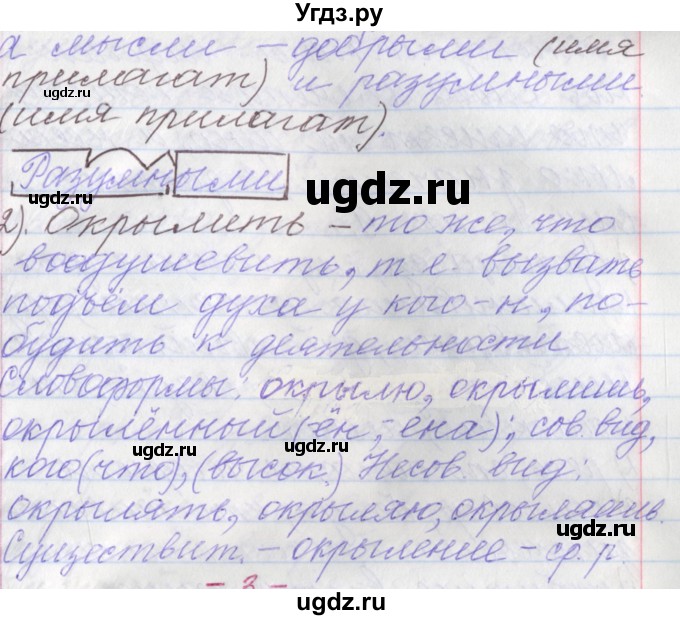 Угдз.ру
а мысли – добрыми (имя
прилагат) и разумными
(имя прилагат).
Разумными
2). Окрылить – то же, что
воодушевить, т. е. вызвать
подъём духа у кого-н., по-
будить к деятельности
Словоформы: окрылю, окрылишь,
окрылённый (-ён, -ена); сов. вид,
кого (что), (высок.) Несов. вид:
окрылять, окрыляю, окрыляешь.
Существит. – окрыление – ср. р.
- 3 -
ugdz.ru
ugdz.ru
ugdz.ru
ugdz.ru
ugdz.ru
ugdz.ru
ugdz.ru
ugdz.ru
ugdz.ru